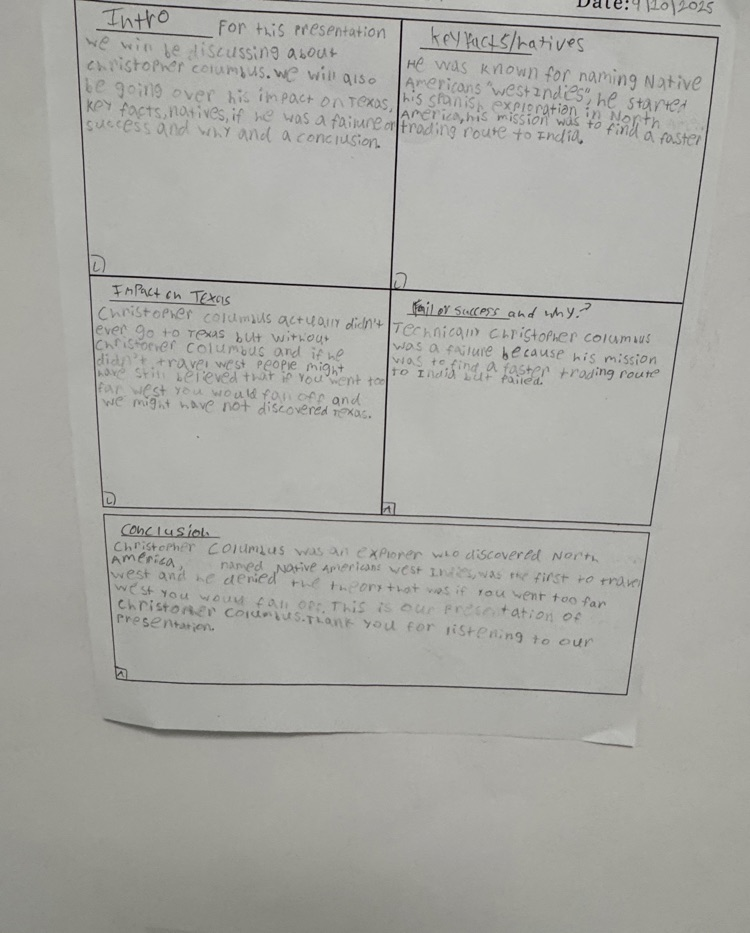 Date: 9/10/2025
Intro
For this presentation
we will be discussing about
christopher columbus. we will also
be going over his impact on Texas,
key facts, natives, if he was a failure or
success and why and a conclusion.
L
key facts/natives
He was known for naming Native
Americans "west Indies", he started
his spanish exploration in North
America, his mission was to find a faster
trading route to India.
L
Impact on Texas
Christopher columbus actually didn't
ever go to Texas but without
Christopher Columbus and if he
didn't travel west people might
have still believed that if you went too
far west you would fall off and
we might have not discovered Texas.
L
Fail or success and why?
Technically Christopher columbus
was a failure because his mission
was to find a faster trading route
to India but failed.
A
Conclusion
Christopher Columbus was an explorer who discovered North
America, named Native Americans west Indies, was the first to travel
west and he denied the theory that was if you went too far
west you would fall off. This is our presentation of
Christopher Columbus. Thank you for listening to our
presentation.
A